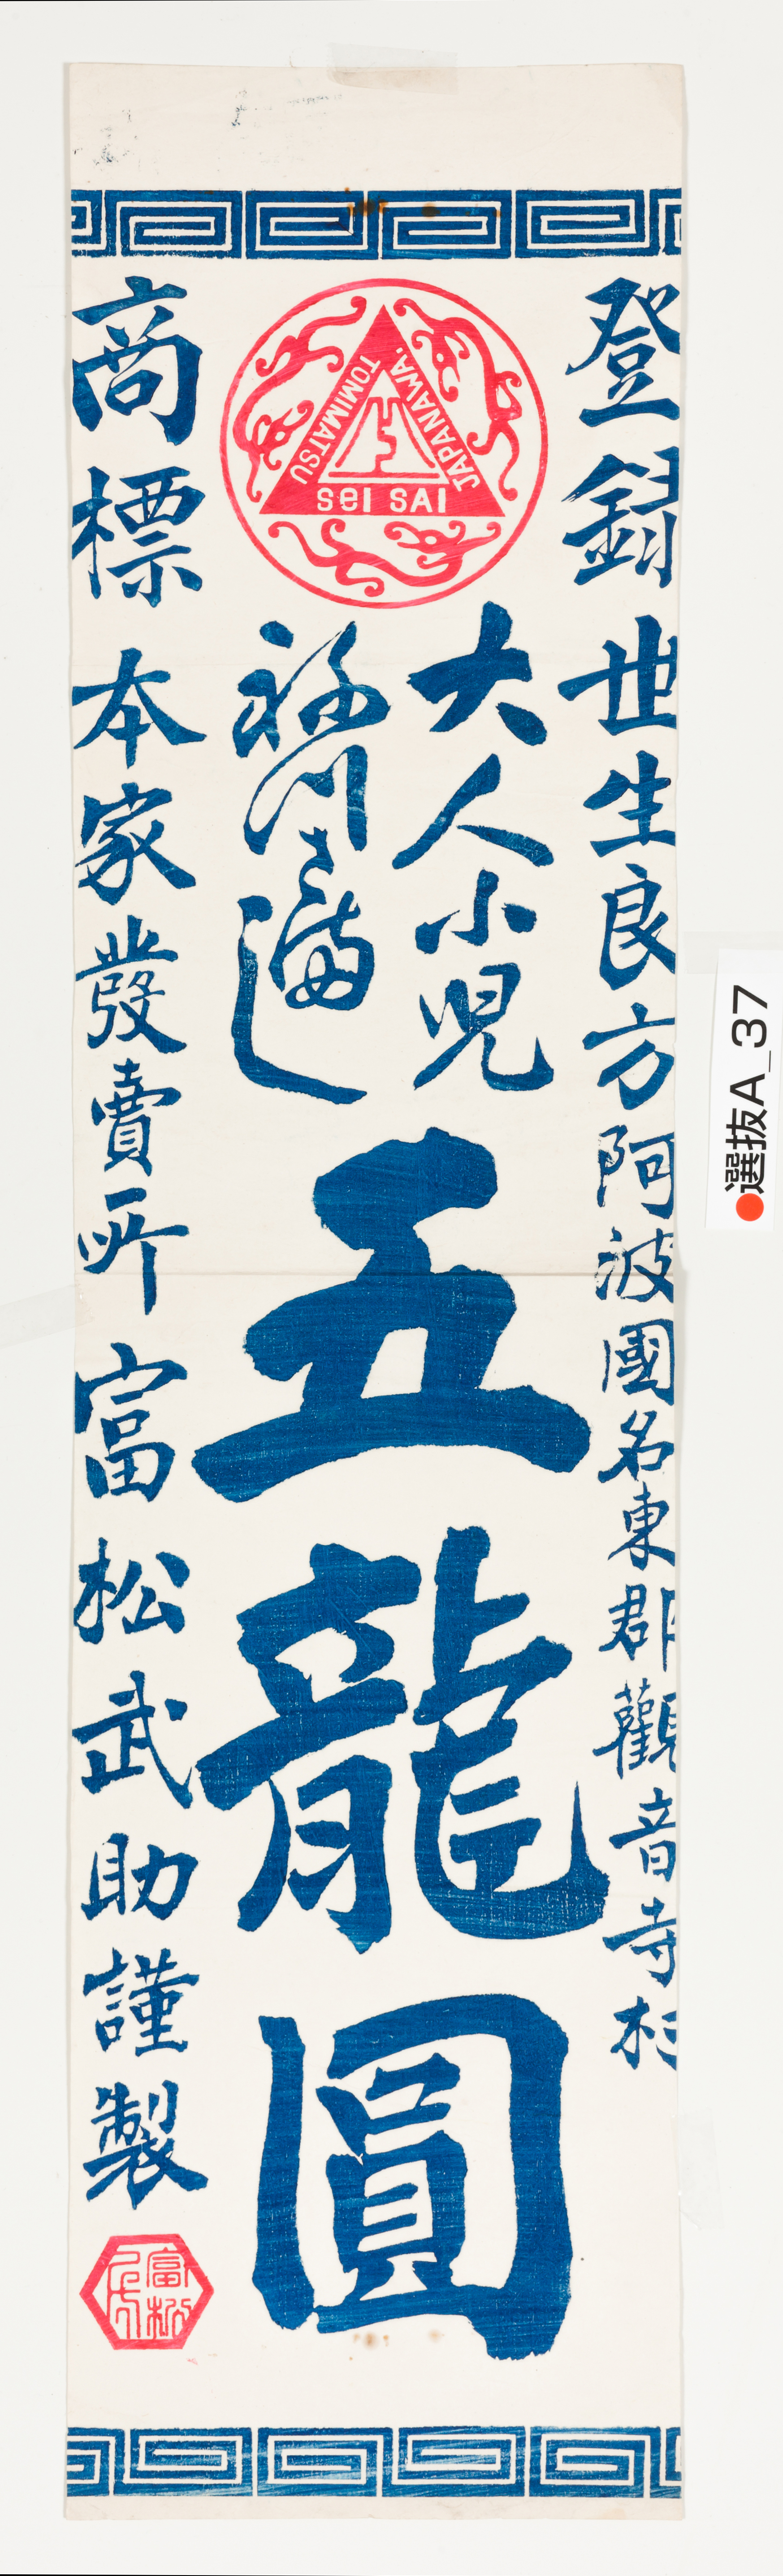 登録
世生良方
阿波國名東郡觀音寺村
TOMIMATSU
JAPANAWA.
seI SAI
大人小児
祢つさ満し
五龍圓
商標
本家發賣所
富松武助謹製
富松
●選抜A_37